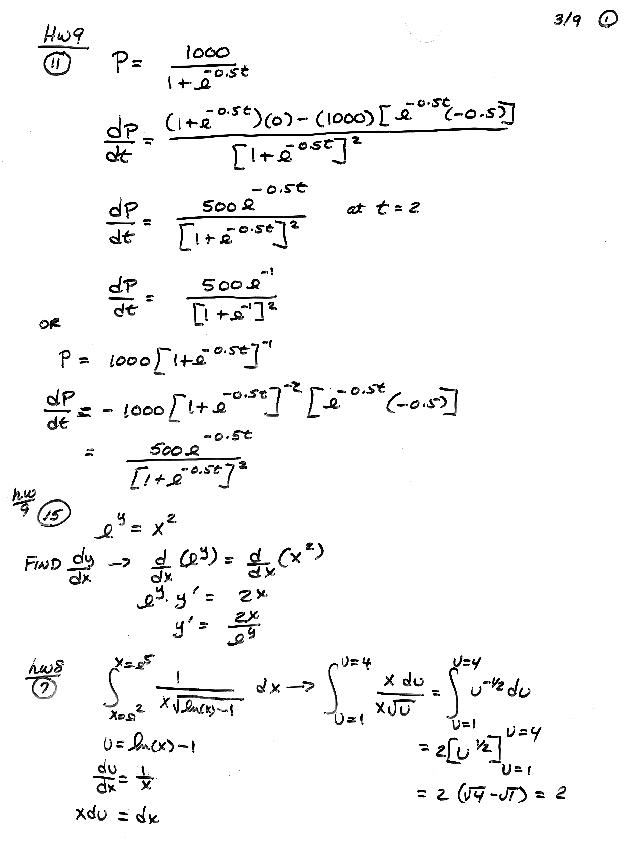 3/9 ①
Hw9
⑪ P = 1000 / (1+e^(-0.5t))
dP/dt = ((1+e^(-0.5t))(0) - (1000)[e^(-0.5t)(-0.5)]) / [1+e^(-0.5t)]^2
dP/dt = 500e^(-0.5t) / [1+e^(-0.5t)]^2 at t = 2
dP/dt = 500e^(-1) / [1+e^(-1)]^2
OR
P = 1000[1+e^(-0.5t)]^(-1)
dP/dt = -1000[1+e^(-0.5t)]^(-2) [e^(-0.5t)(-0.5)]
= 500e^(-0.5t) / [1+e^(-0.5t)]^2
hw 9 ⑮
e^y = x^2
FIND dy/dx → d/dx (e^y) = d/dx (x^2)
e^y · y' = 2x
y' = 2x / e^y
hw8 ⑦ ∫_(x=e^2)^(x=e^5) 1 / (x√(ln(x)-1)) dx → ∫_(U=1)^(U=4) x du / (x√U) = ∫_(U=1)^(U=4) u^(-1/2) du
U = ln(x) - 1
= 2[U^(1/2)]_(U=1)^(U=4)
du/dx = 1/x
= 2(√4 - √1) = 2
xdu = dx